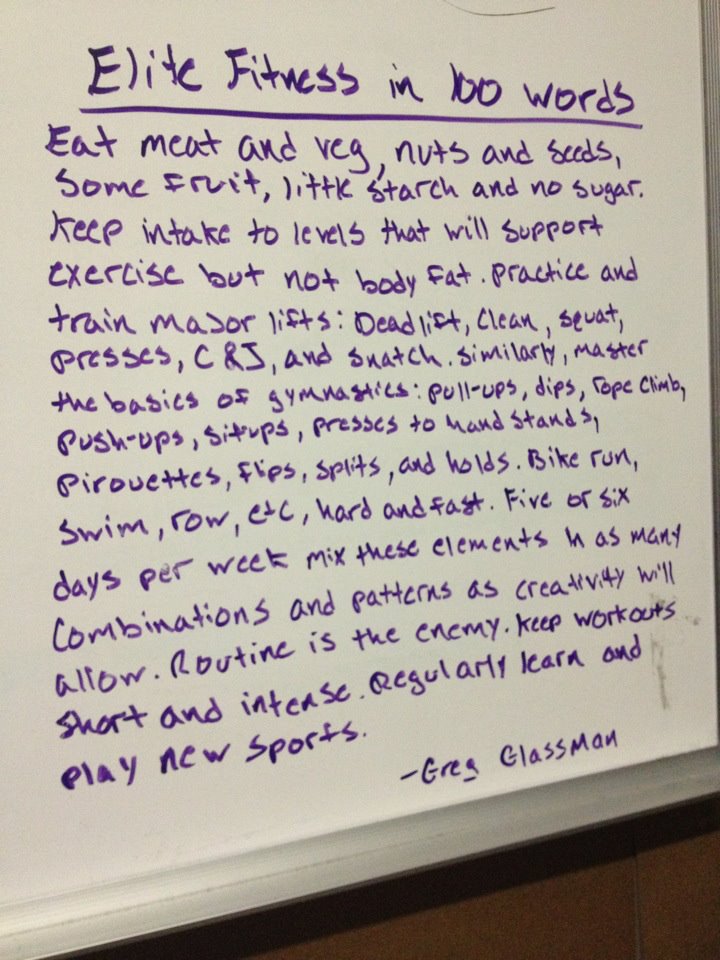 Elite Fitness in 100 words
Eat meat and veg, nuts and seeds,
Some Fruit, little starch and no sugar.
Keep intake to levels that will support
exercise but not body fat. Practice and
train major lifts: Deadlift, Clean, squat,
presses, C & J, and snatch. Similarly, master
the basics of gymnastics: pull-ups, dips, rope climb,
push-ups, sit-ups, presses to handstands,
pirouettes, flips, splits, and holds. Bike run,
swim, row, etc, hard and fast. Five or six
days per week mix these elements in as many
combinations and patterns as creativity will
allow. Routine is the enemy. Keep workouts
short and intense. Regularly learn and
play new sports.
-Greg Glassman